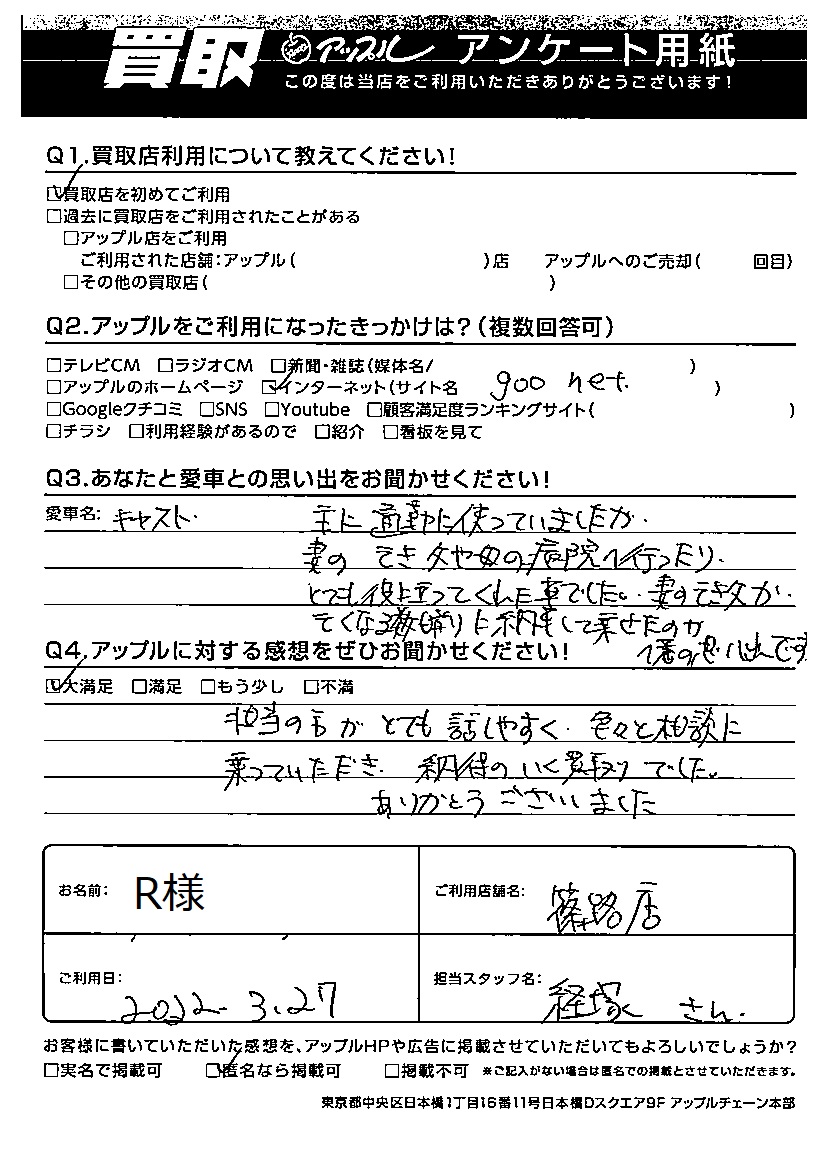 買取 アップル アンケート用紙
この度は当店をご利用いただきありがとうございます!
Q1.買取店利用について教えてください!
☑買取店を初めてご利用
□過去に買取店をご利用されたことがある
□アップル店をご利用
ご利用された店舗:アップル( )店 アップルへのご売却( 回目)
□その他の買取店( )
Q2.アップルをご利用になったきっかけは?(複数回答可)
□テレビCM □ラジオCM □新聞・雑誌(媒体名/ )
□アップルのホームページ ☑インターネット(サイト名 goo net. )
□Googleクチコミ □SNS □Youtube □顧客満足度ランキングサイト( )
□チラシ □利用経験があるので □紹介 □看板を見て
Q3.あなたと愛車との思い出をお聞かせください!
愛車名: キャスト. 主に通勤に使っていましたが.
妻の 父や母の病院へ行ったり.
とても役立ってくれた車でした。妻の
のが
一番の思い出です
Q4.アップルに対する感想をぜひお聞かせください!
☑大満足 □満足 □もう少し □不満
担当の方が とても 話しやすく. 色々と相談に
乗っていただき. 納得のいく買取りでした。
ありがとうございました
お名前: R様
ご利用店舗名: 篠路店
ご利用日: 2022. 3.27
担当スタッフ名: 経塚 さん.
お客様に書いていただいた感想を、アップルHPや広告に掲載させていただいてもよろしいでしょうか?
□実名で掲載可 ☑匿名なら掲載可 □掲載不可 ※ご記入がない場合は匿名での掲載とさせていただきます。
東京都中央区日本橋1丁目16番11号日本橋Dスクエア9F アップルチェーン本部